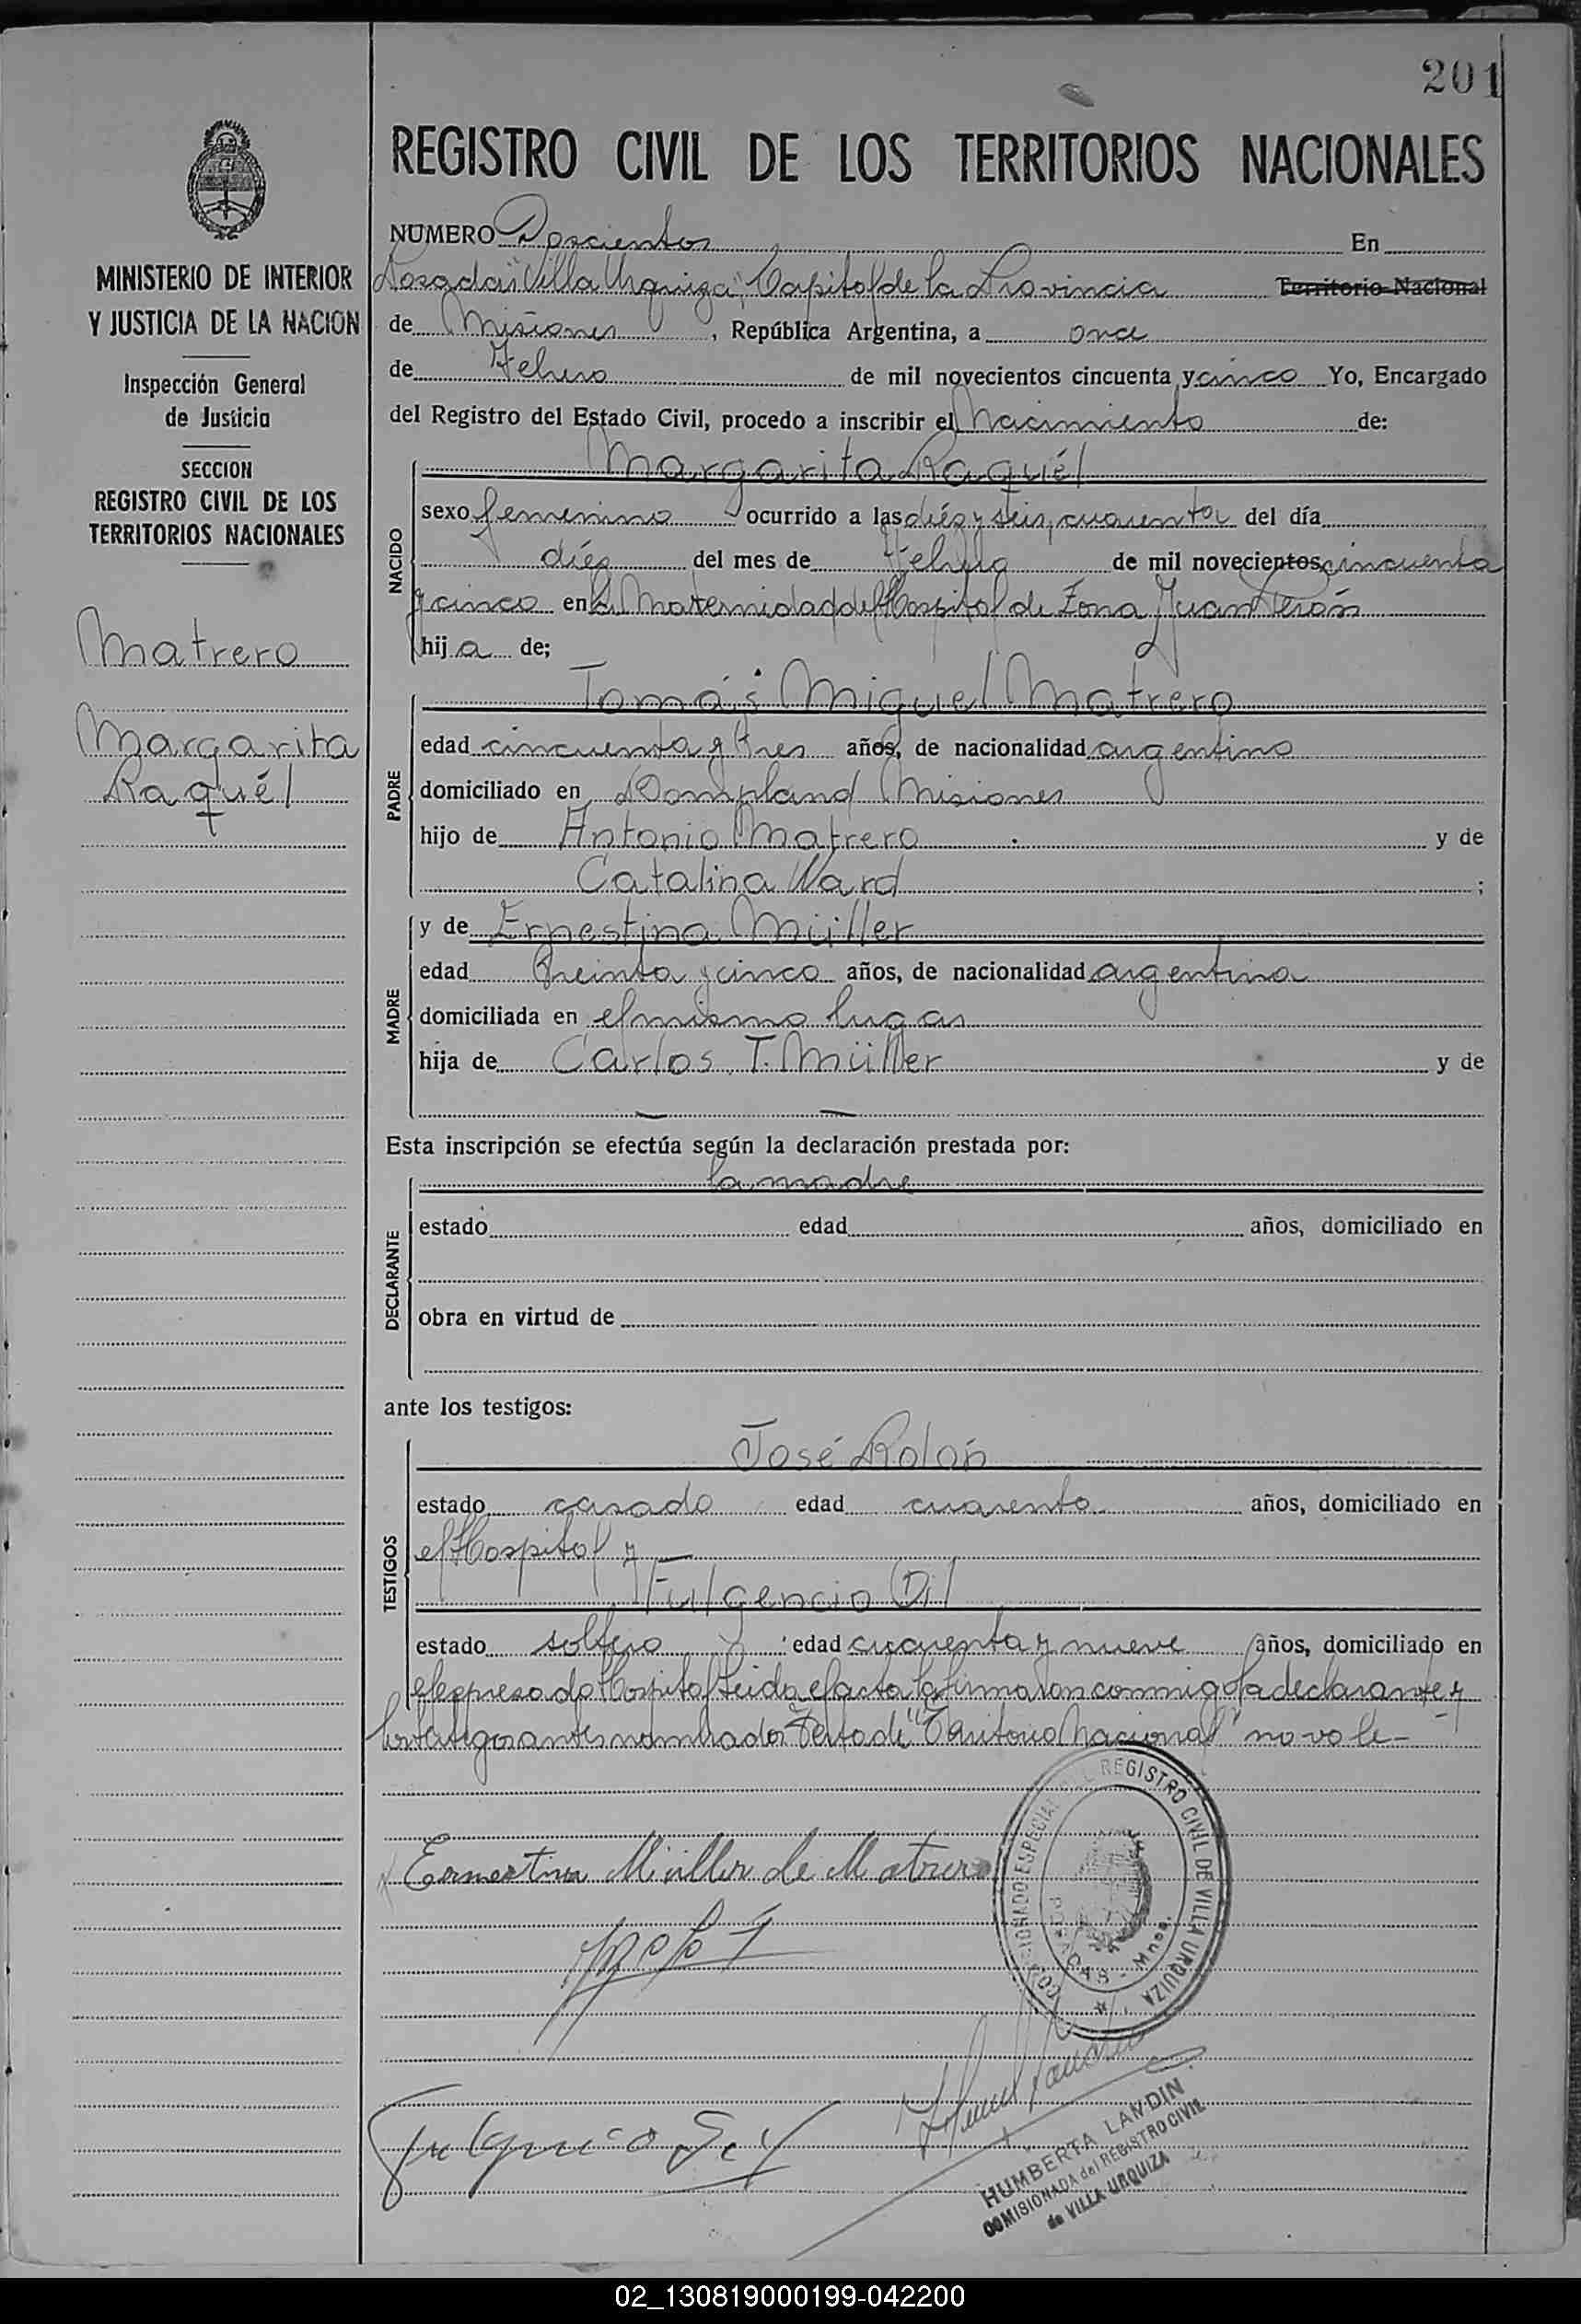 201
REGISTRO CIVIL DE LOS TERRITORIOS NACIONALES
MINISTERIO DE INTERIOR
Y JUSTICIA DE LA NACION
Inspección General
de Justicia
SECCION
REGISTRO CIVIL DE LOS
TERRITORIOS NACIONALES
Matrero
Margarita
Raquél
NUMERO Doscientos En
Posadas "Villa Urquiza", Capital de la Provincia Territorio Nacional
de Misiones, República Argentina, a once
de Febrero de mil novecientos cincuenta y cinco Yo, Encargado
del Registro del Estado Civil, procedo a inscribir el Nacimiento de:
NACIDO
Margarita Raquél
sexo femenino ocurrido a las diéz y seis, cuarenta del día
diéz del mes de Febrero de mil novecientos cincuenta
y cinco en la Maternidad del Hospital de Zona Juan Perón
hija de;
PADRE
Tomás Miguel Matrero
edad cincuenta y tres años, de nacionalidad argentino
domiciliado en Bompland Misiones
hijo de Antonio Matrero y de
Catalina Ward ;
MADRE
y de Ernestina Müller
edad treinta y cinco años, de nacionalidad argentina
domiciliada en el mismo lugar
hija de Carlos T. Müller y de
— —
Esta inscripción se efectúa según la declaración prestada por:
DECLARANTE
la madre
estado edad años, domiciliado en
obra en virtud de
ante los testigos:
TESTIGOS
José Rolón
estado casado edad cuarenta años, domiciliado en
el Hospital y
Fulgencio Gil
estado soltero edad cuarenta y nueve años, domiciliado en
el expresado Hospital Leida el acta la firmaron conmigo la declarante y
los testigos antes nombrados Testado: "Territorio Nacional" no vale-
Ernestina Müller de Matrero
REGISTRO CIVIL DE VILLA URQUIZA
POSADAS - Mnes.
HUMBERTA LANDIN
COMISIONADA del REGISTRO CIVIL
de VILLA URQUIZA
02_130819000199-042200